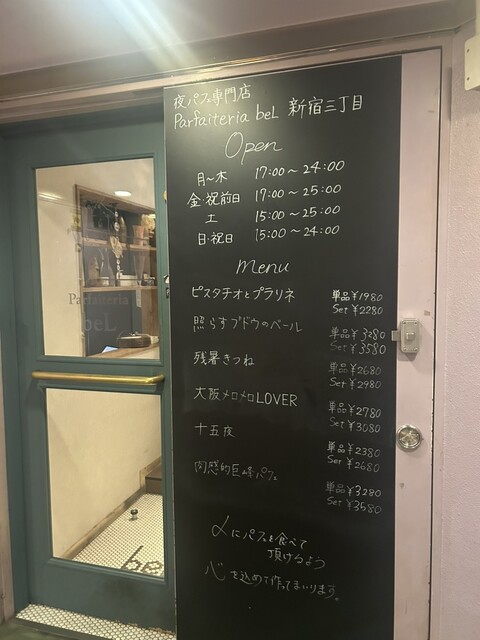 夜パフェ専門店
Parfaiteria beL 新宿三丁目
Open
月~木 17:00~24:00
金・祝前日 17:00~25:00
土 15:00~25:00
日・祝日 15:00~24:00
Menu
ピスタチオとプラリネ 単品¥1980
Set ¥2280
照らすブドウのベール 単品¥3280
Set ¥3580
残暑きつね 単品¥2680
Set ¥2980
大阪メロメロLOVER 単品¥2780
Set ¥3080
十五夜 単品¥2380
Set ¥2680
肉感的巨峰パフェ 単品¥3280
Set ¥3580
〆にパフェを食べて
頂けるよう
心を込めて作ってまいります。
Parfaiteria
beL
be